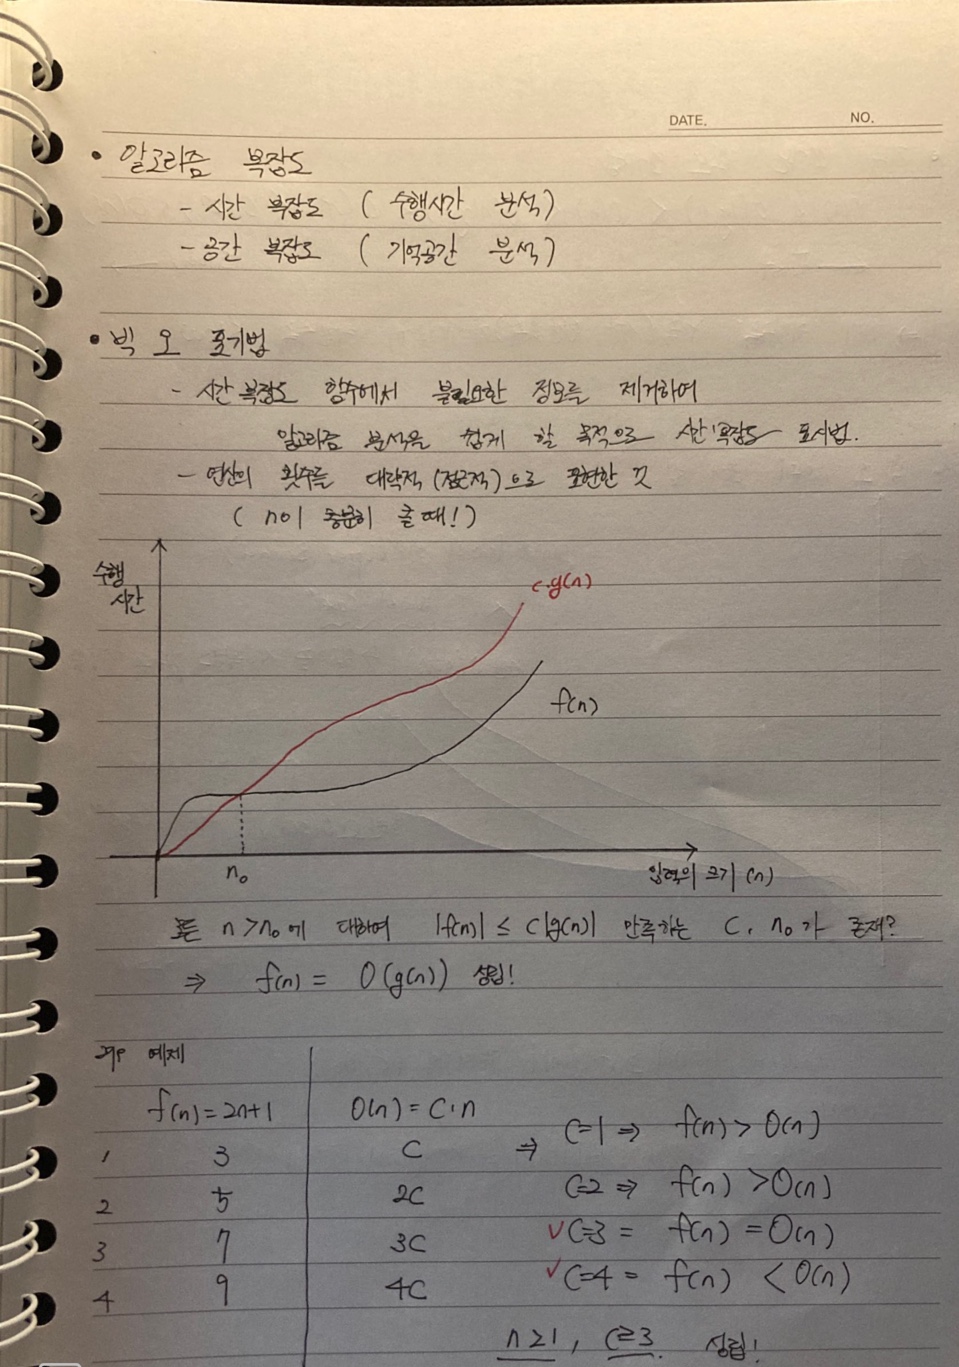 DATE. NO.
• 알고리즘 복잡도
- 시간 복잡도 ( 수행시간 분석)
- 공간 복잡도 ( 기억공간 분석)
• 빅 오 표기법
- 시간복잡도 함수에서 불필요한 정보를 제거하여
알고리즘 분석을 쉽게 할 목적으로 시간복잡도 표시법.
- 연산의 횟수를 대략적 (점근적) 으로 표현한 것
( n이 충분히 클 때! )
수행
시간
c·g(n)
f(n)
n₀
입력의 크기 (n)
모든 n>n₀에 대하여 |f(n)| ≤ c|g(n)| 만족하는 C, n₀가 존재?
⇒ f(n) = O(g(n)) 성립!
예제
f(n)=2n+1 O(n) = C·n
1 3 C ⇒ C=1 ⇒ f(n) > O(n)
2 5 2C C=2 ⇒ f(n) > O(n)
3 7 3C ✓ C=3 = f(n) = O(n)
4 9 4C ✓ C=4 = f(n) < O(n)
n≥1, C≥3. 성립!